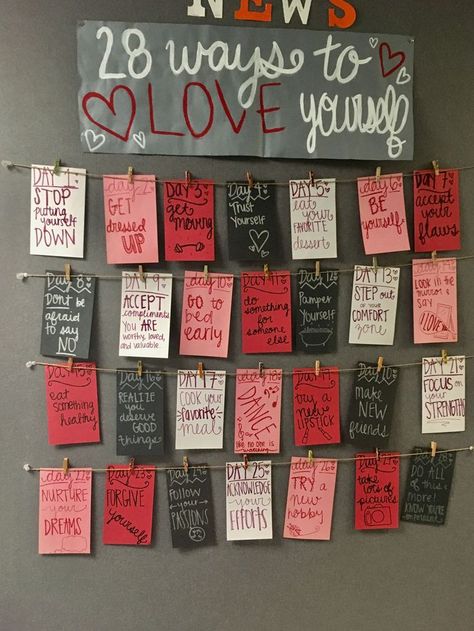 NEWS
28 ways to
LOVE yourself
DAY 1
STOP
putting
yourself
DOWN
day 2
GET
dressed
UP
Day 3
get
moving
Day 4
Trust
Yourself
day 5
eat
your
FAVORITE
dessert
day 6
BE
yourself
DAY 7
accept
your
flaws
Day 8
Don't be
afraid
to say
NO
DAY 9
ACCEPT
compliments
YOU ARE
worthy, loved,
and valuable
day 10
Go to
bed
early
day 11
do
something
for
someone
else
Day 12
Pamper
Yourself
DAY 13
STEP out
of your
COMFORT
zone
Look in
the mirror
& say
day 15
eat
something
healthy
Day 16
REALIZE
you
deserve
GOOD
things
DAY 17
COOK
your
favorite
meal
day 18
DANCE
like no one is
watching
try a
new
lipstick
MAKE
NEW
friends
DAY 21
FOCUS
on your
STRENGTHS
day 22
NURTURE
your
DREAMS
DAY 23
FORGIVE
yourself
Day 24
Follow
your
PASSIONS
DAY 25
ACKNOWLEDGE
your
EFFORTS
TRY A
new
hobby
take
lots of
pictures
Day 28
DO ALL
of this &
more!
KNOW YOU'RE